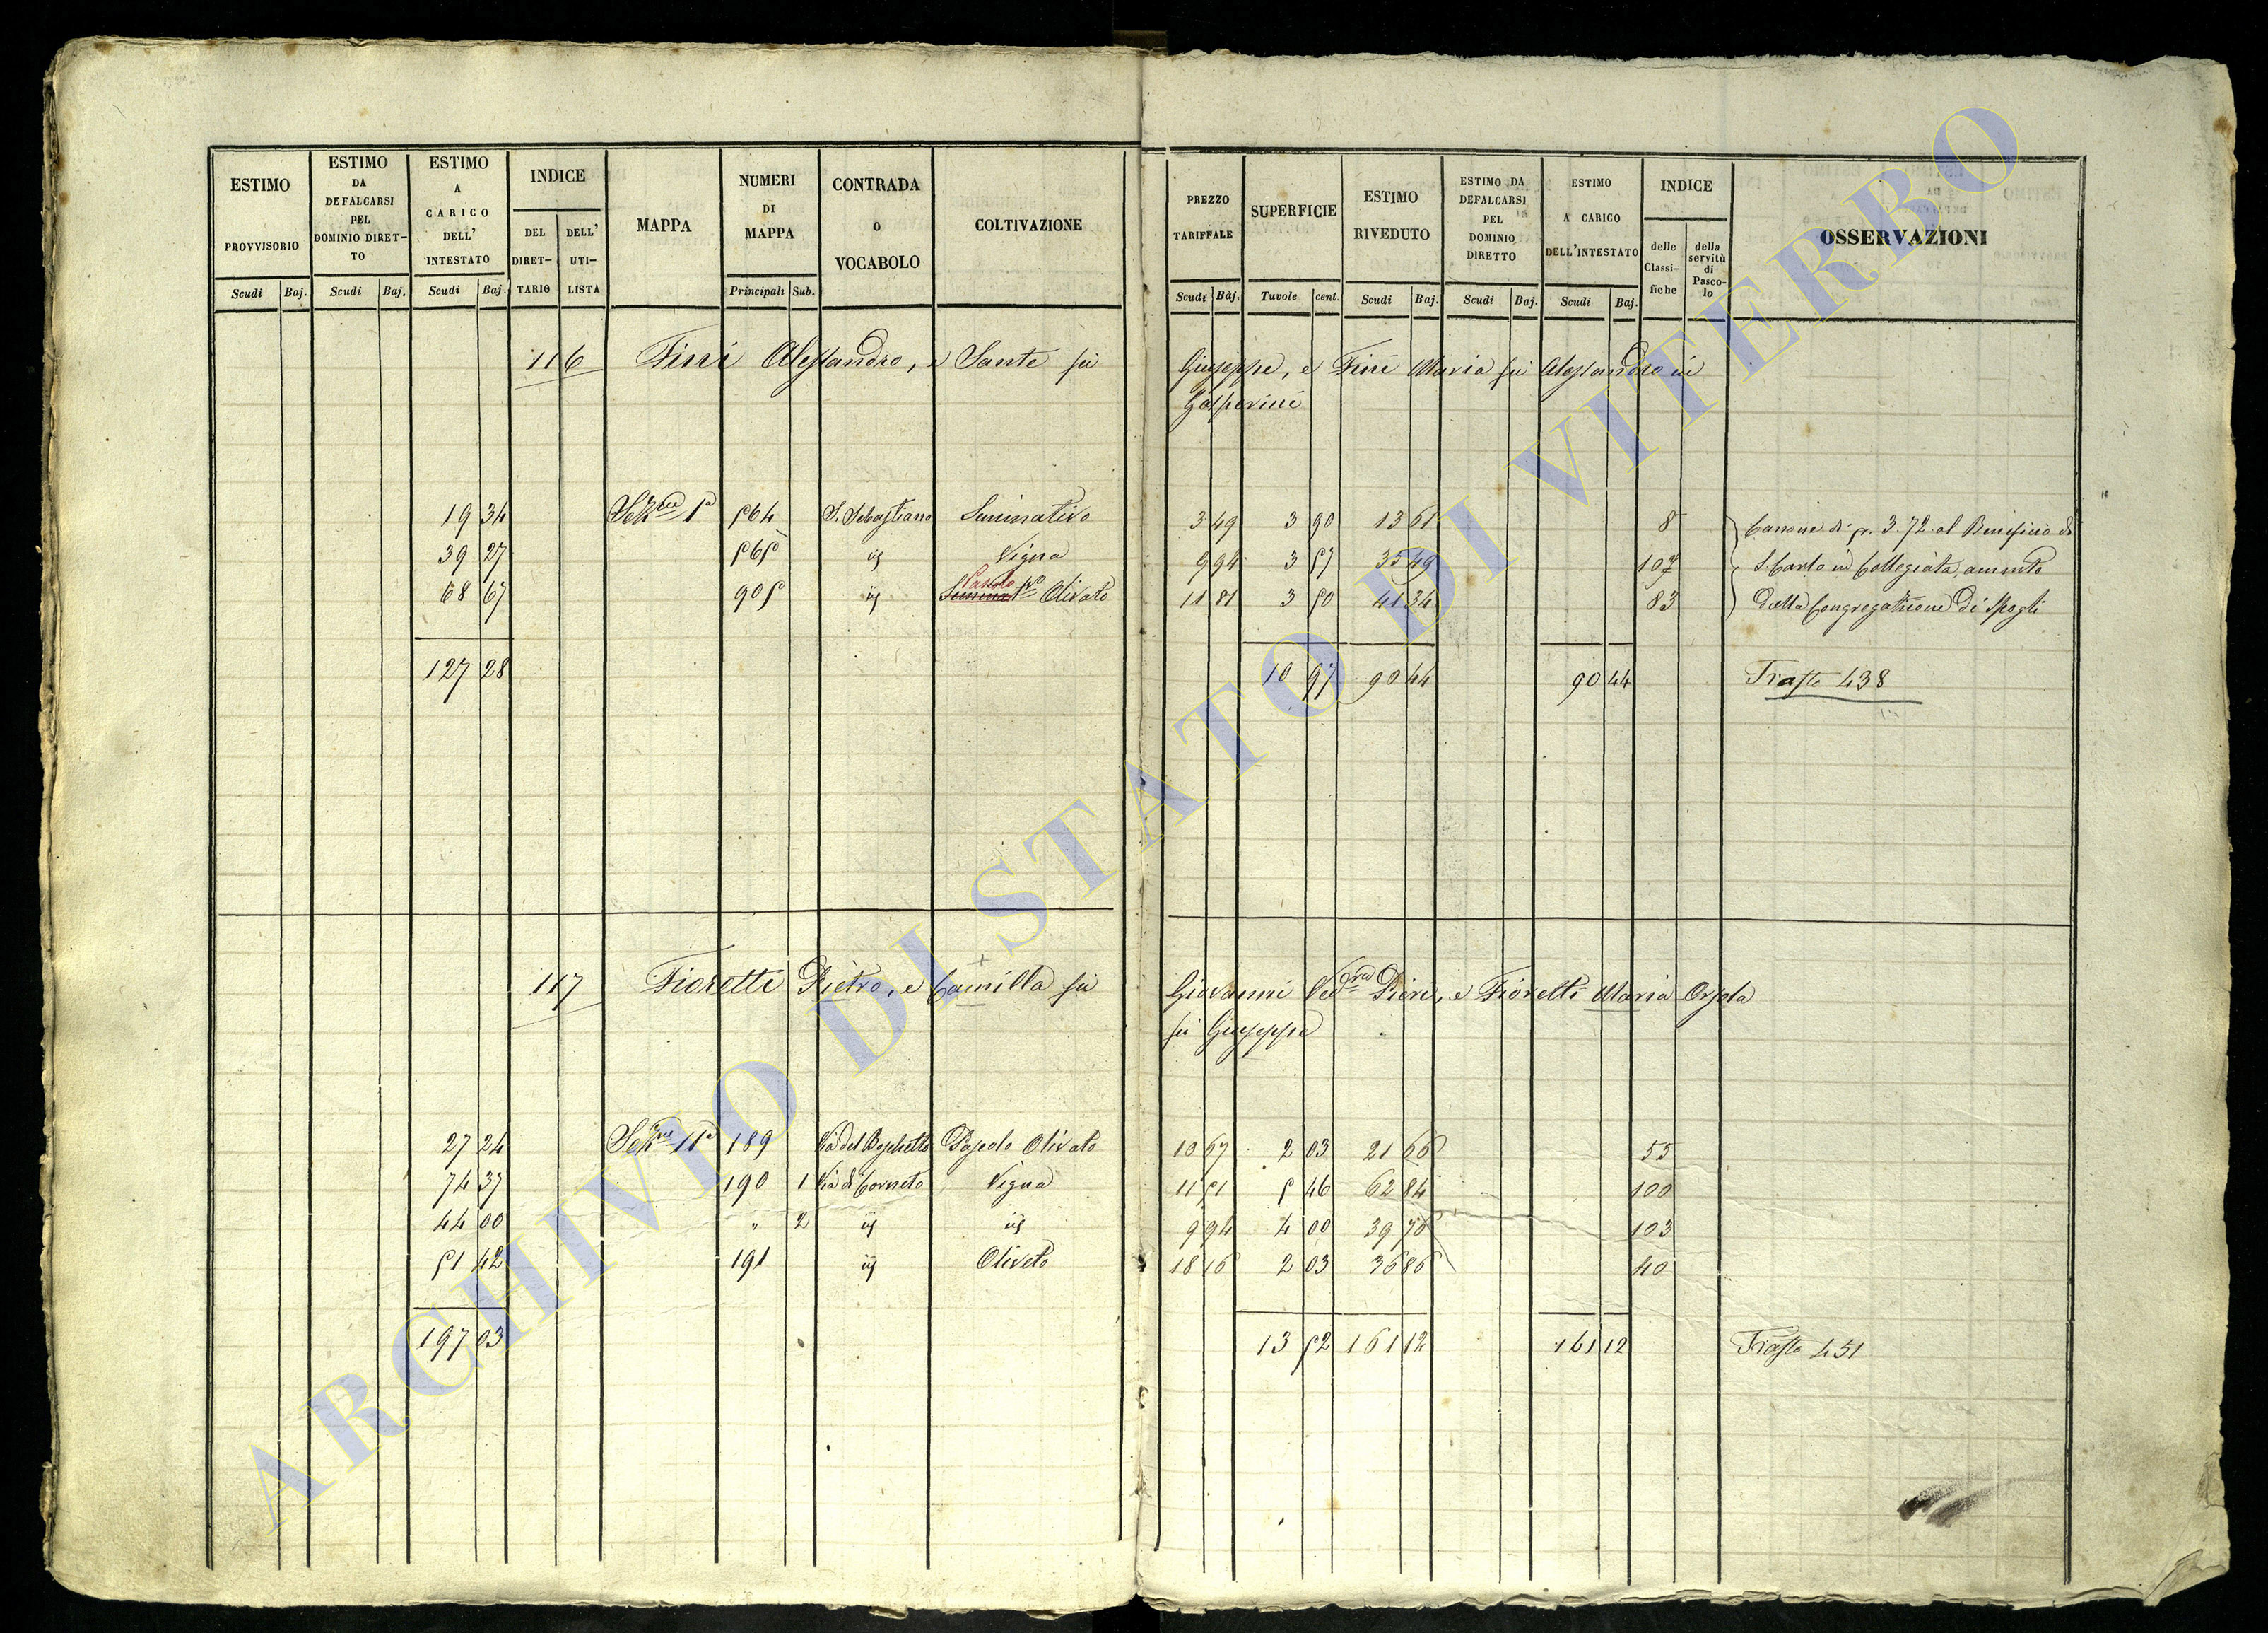 ESTIMO PROVVISORIO | ESTIMO DA DEFALCARSI PEL DOMINIO DIRET-TO | ESTIMO A CARICO DELL' INTESTATO | INDICE | MAPPA | NUMERI DI MAPPA | CONTRADA O VOCABOLO | COLTIVAZIONE | PREZZO TARIFFALE | SUPERFICIE | ESTIMO RIVEDUTO | ESTIMO DA DEFALCARSI PEL DOMINIO DIRETTO | ESTIMO A CARICO DELL'INTESTATO | INDICE | OSSERVAZIONI
DEL DIRET-TARIO | DELL' UTI-LISTA | delle Classi-fiche | della servitù di Pasco-lo
Scudi | Baj. | Scudi | Baj. | Scudi | Baj. | Principali | Sub. | Scudi | Baj. | Tavole | cent. | Scudi | Baj. | Scudi | Baj. | Scudi | Baj.
116 Fini Alessandro, e Sante fù Giuseppe, e Fini Maria fù Alessandro in
Gasperini
19 34 Sez.ne 1a 564 S. Sebastiano Seminativo 3 49 3 90 13 61 8 Canone di sc. 3.72 al Beneficio di
39 27 565 id Vigna 9 94 3 57 35 49 107 S. Carlo in Collegiata, ammto
68 67 905 id Semina Pascolo vo Olivato 11 81 3 50 41 34 83 dalla Congregazione di Spogli
127 28 10 97 90 44 90 44 Trasto 438
117 Fioretti Pietro, e Camilla fù Giovanni Ved.va Pieri, e Fioretti Maria Orsola
fù Giuseppe
27 24 Sez.ne 11a 189 Via del Boschetto Pascolo Olivato 10 67 2 03 21 66 55
74 37 190 1 Via di Corneto Vigna 11 51 5 46 62 84 100
44 00 " 2 id id 9 94 4 00 39 76 103
51 42 191 id Oliveto 18 16 2 03 36 86 40
197 03 13 52 161 12 161 12 Trasto 451
ARCHIVIO DI STATO DI VITERBO